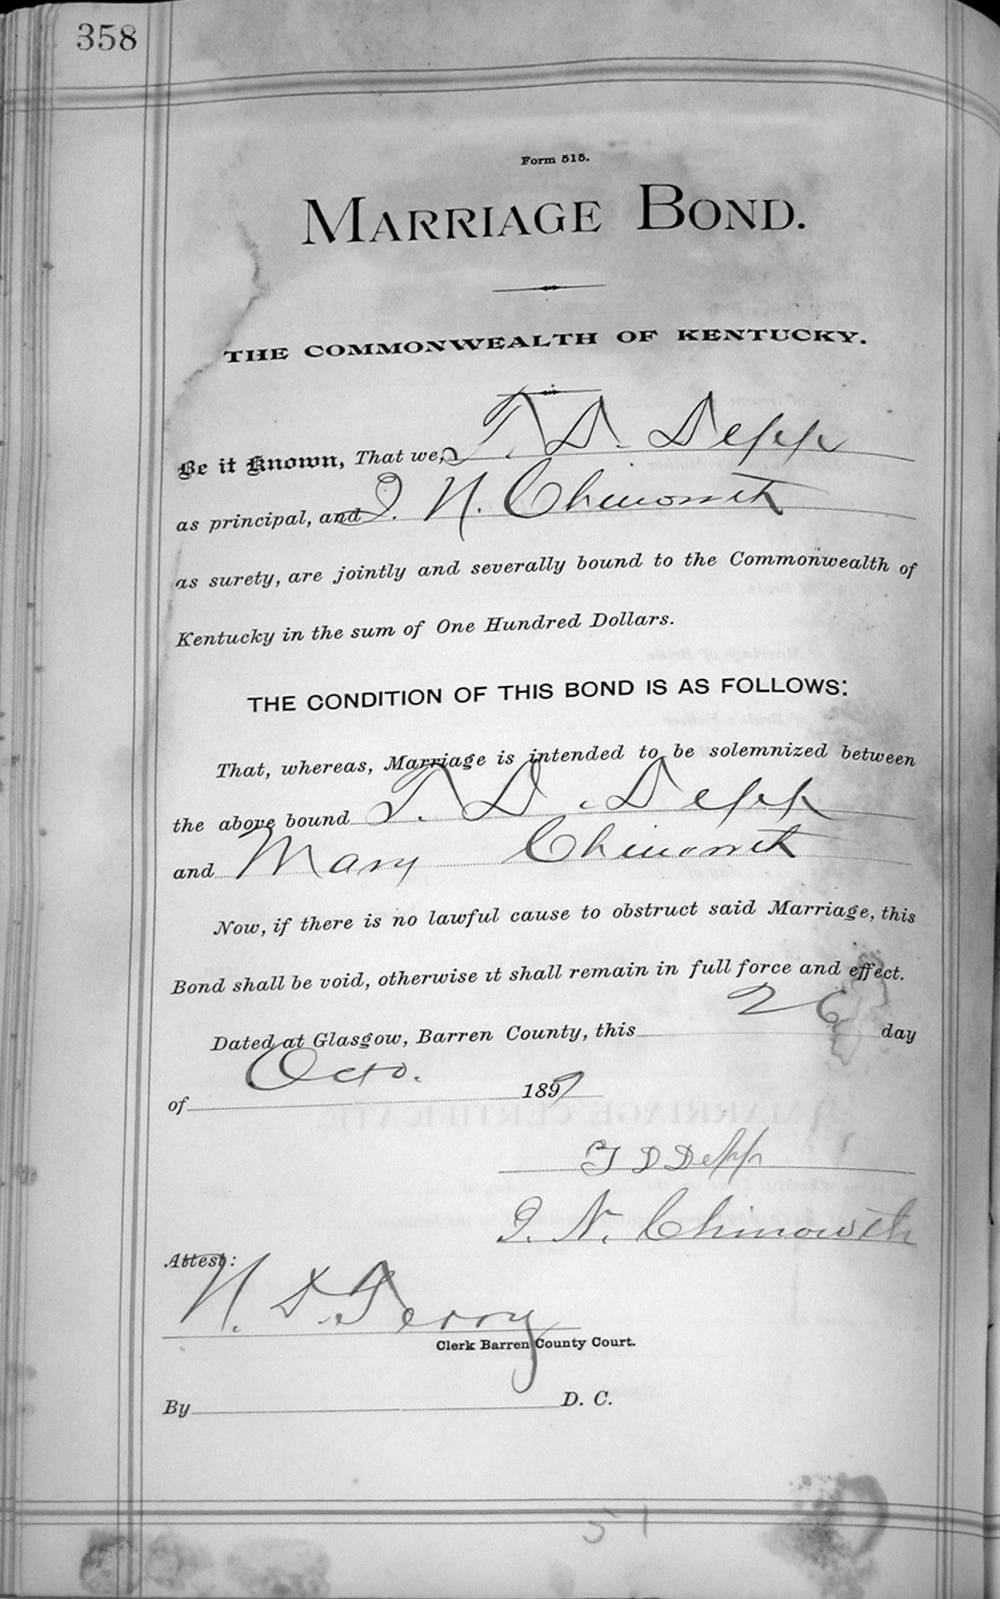 358
Form 515.
MARRIAGE BOND.
THE COMMONWEALTH OF KENTUCKY.
Be it Known, That we, T. D. Depp
as principal, and J. N. Chinowth
as surety, are jointly and severally bound to the Commonwealth of
Kentucky in the sum of One Hundred Dollars.
THE CONDITION OF THIS BOND IS AS FOLLOWS:
That, whereas, Marriage is intended to be solemnized between
the above bound T. D. Depp
and Mary Chinowth
Now, if there is no lawful cause to obstruct said Marriage, this
Bond shall be void, otherwise it shall remain in full force and effect.
Dated at Glasgow, Barren County, this 26 day
of Octo. 1897
T D Depp
J. N. Chinowth
Attest:
N. D. Terry
Clerk Barren County Court.
By D. C.
51